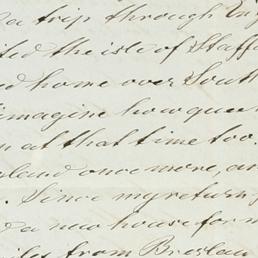 a trip through Eng
ited the isle of Staff
d home over South
imagine how quee
n at that time too.
land once more, a
. Since my return
d a new house for m
iles from Breslau